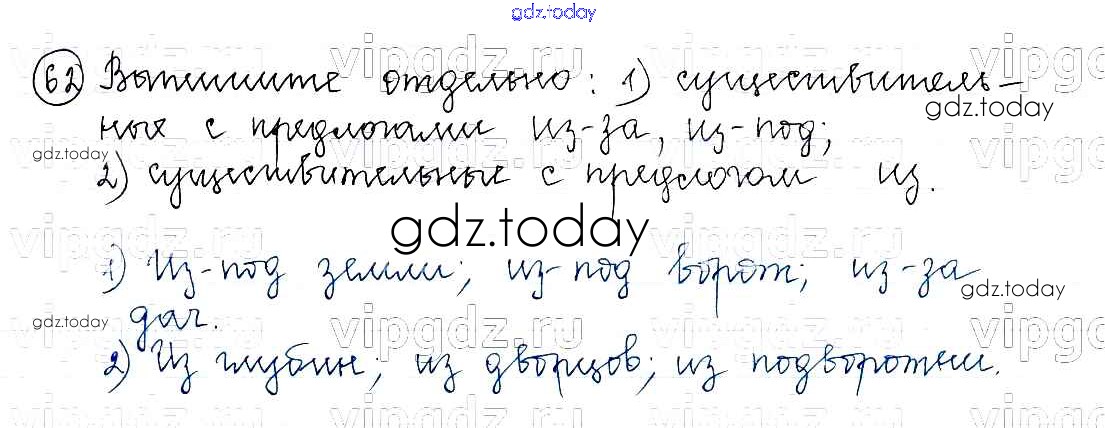 gdz.today
62 Выпишите отдельно: 1) существитель-
gdz.today
ные с предлогами из-за, из-под;
gdz.today
2) существительные с предлогом из.
gdz.today
1) Из-под земли; из-под ворот; из-за
gdz.today
дач.
gdz.today
2) Из глубин; из дворцов; из подворотни.
vipgdz.ru